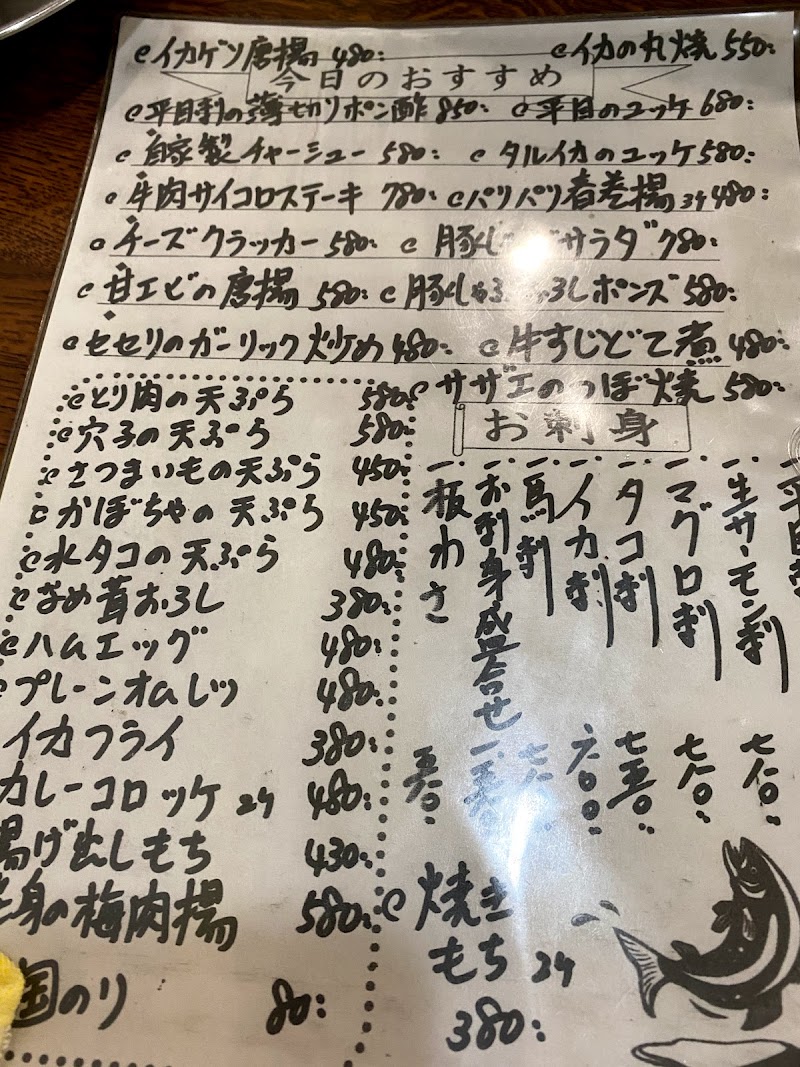 イカゲソ唐揚 480: イカの丸焼 550:
今日のおすすめ
平目刺の薄切りポン酢 850: 平目のユッケ 680:
自家製チャーシュー 580: タルイカのユッケ 580:
牛肉サイコロステーキ 780: パリパリ春巻揚 3ケ 480:
チーズクラッカー 580: 豚し サラダ 780:
甘エビの唐揚 580: 豚しゃぶ ろしポンズ 580:
セセリのガーリック炒め 480: 牛すじどて煮 480:
サザエのつぼ焼 580:
とり肉の天ぷら 580:
穴子の天ぷら 580:
さつまいもの天ぷら 450:
かぼちゃの天ぷら 450:
水タコの天ぷら 480:
なめ茸おろし 380:
ハムエッグ 480:
プレーンオムレツ 480:
イカフライ 380:
カレーコロッケ 2ケ 480:
揚げ出しもち 430:
身の梅肉揚 580:
のり 80:
お刺身
平目
一、生サーモン刺 七八〇:
一、マグロ刺 七八〇:
一、タコ刺 七五〇:
一、イカ刺 六〇〇:
一、馬刺
一、お刺身盛合せ
一、板わさ 五八〇:
焼き
もち 2ケ
380: